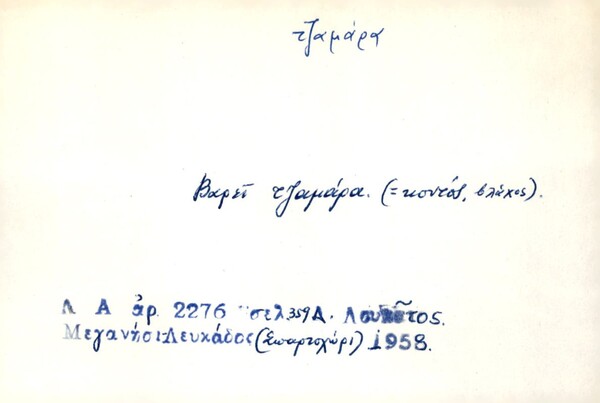 τζαμάρα
Βαρεῖ τζαμάρα. (= κουτός, βλάχος).
Λ Α ἀρ. 2276 σελ. 359 Δ. Λουκᾶτος.
Μεγανήσι Λευκάδος (Σπαρτοχώρι) 1958.